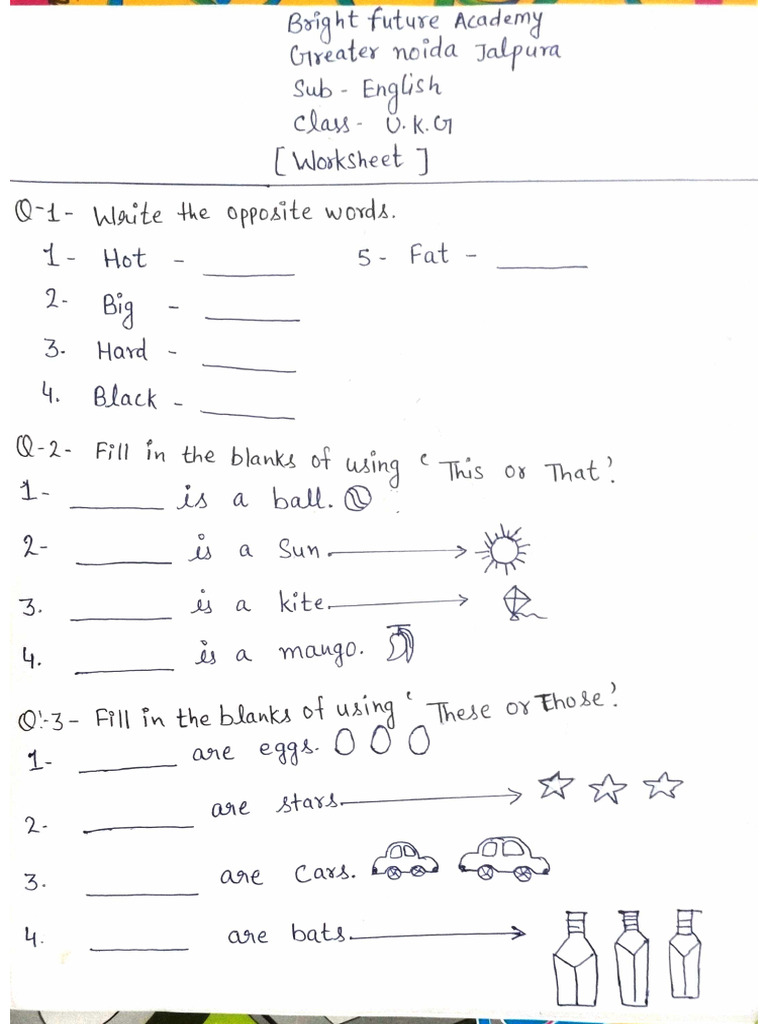 Bright future Academy
Greater noida Jalpura
Sub - English
Class - U.K.G
[Worksheet]
Q-1- Write the opposite words.
1- Hot - ______ 5- Fat - ______
2- Big - ______
3. Hard - ______
4. Black - ______
Q-2- Fill in the blanks of using ‘This or That’.
1- ______ is a ball.
2- ______ is a Sun
3. ______ is a kite
4. ______ is a mango.
Q.-3- Fill in the blanks of using ‘These or Those’.
1- ______ are eggs.
2- ______ are stars
3. ______ are Cars.
4. ______ are bats